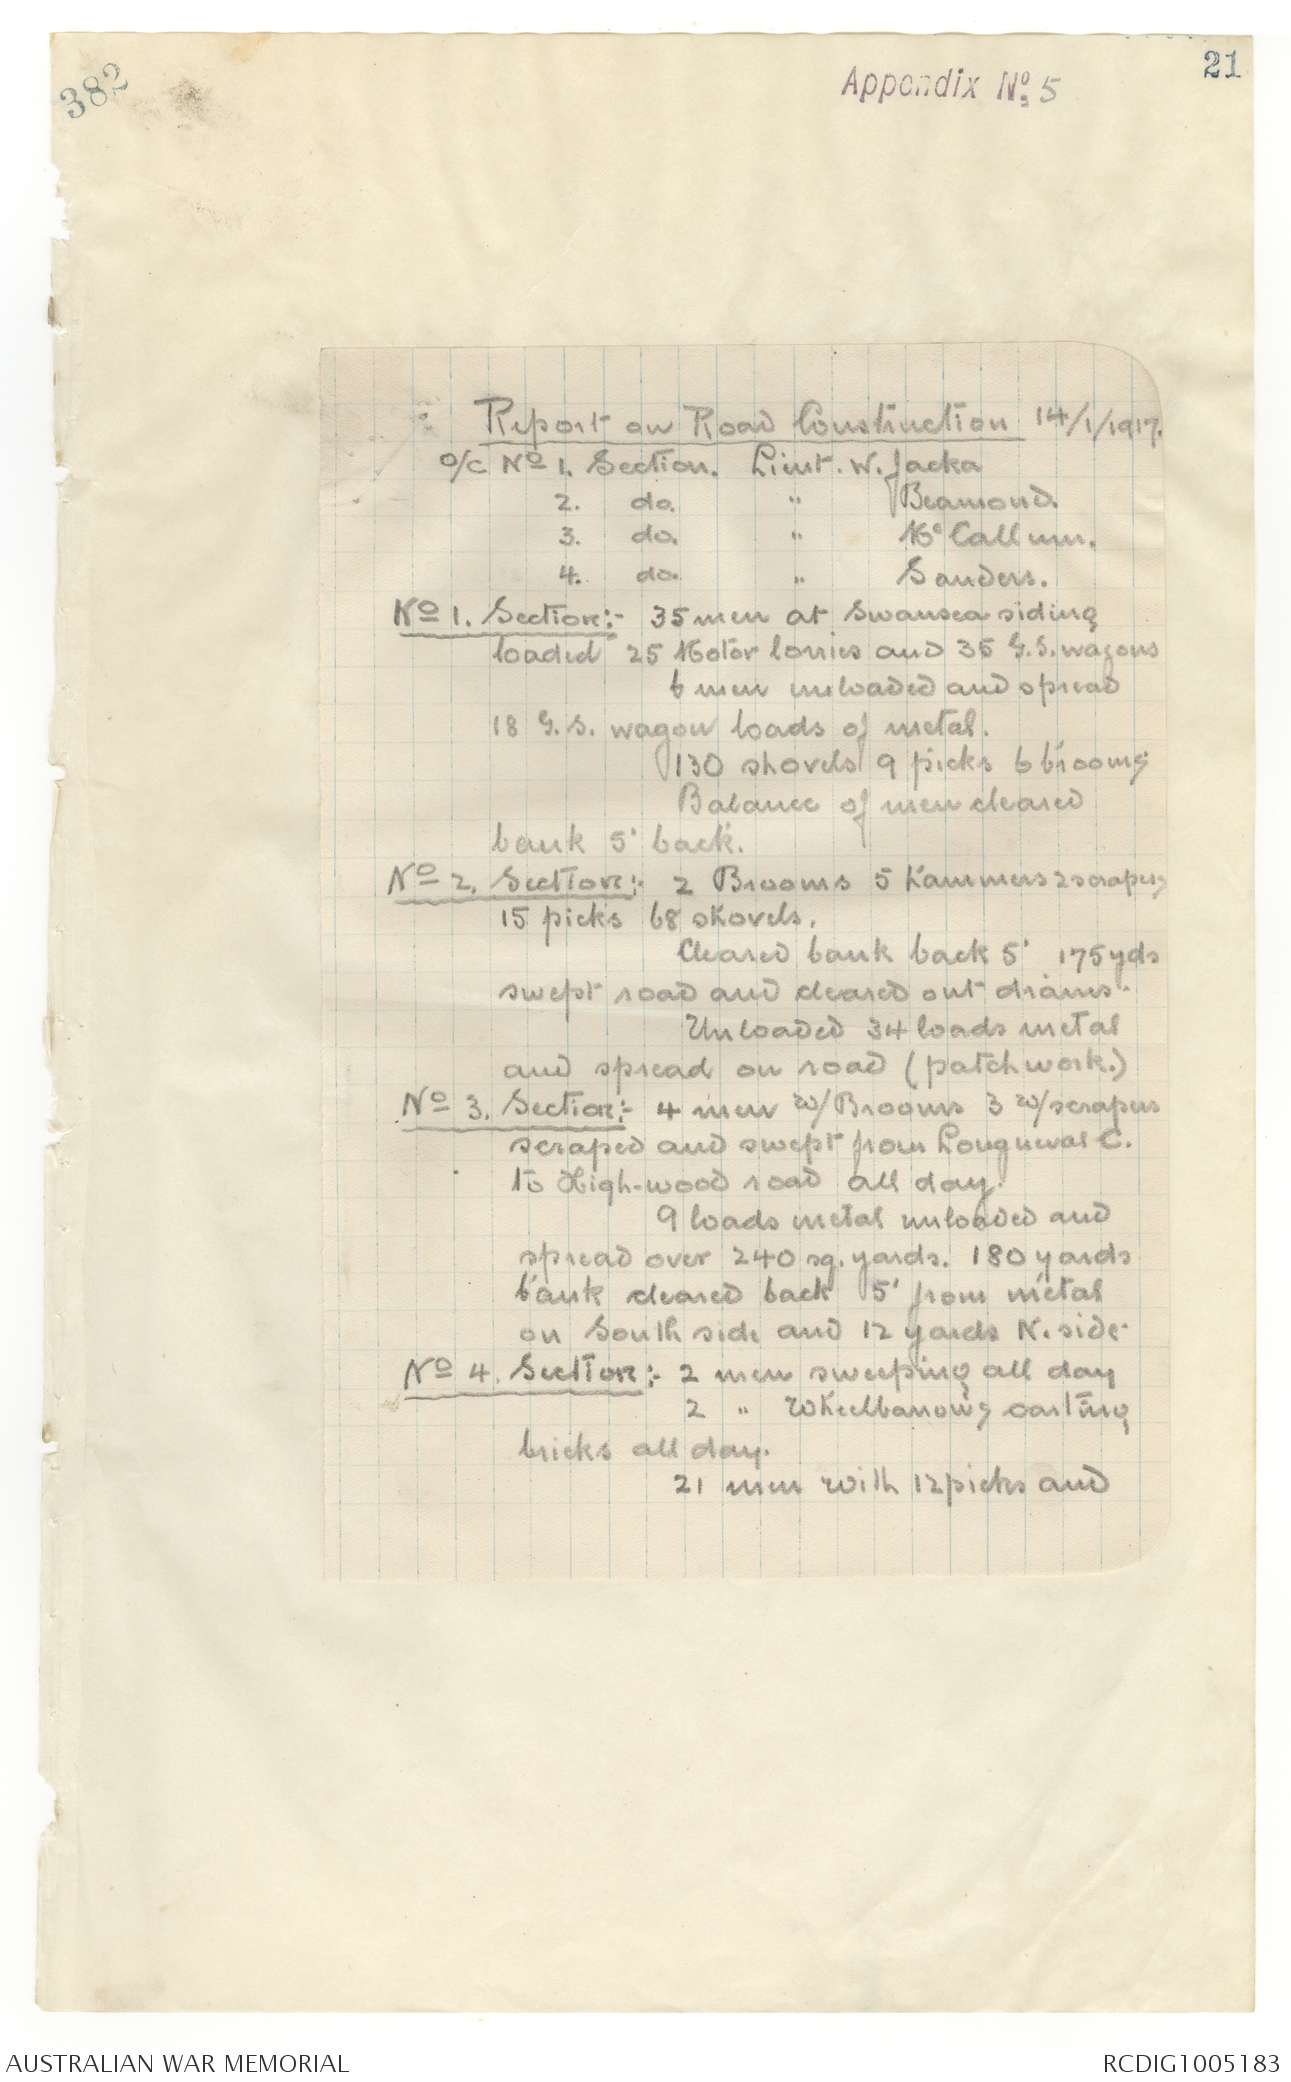 382
21
Appendix No. 5
Report on Road Construction 14/1/1917.
O/C No 1. Section. Lieut. W. Jacka
2. do. " Beamond.
3. do. " McCallum.
4. do. " Sanders.
No 1. Section:- 35 men at Swansea siding
loaded 25 Motor lorries and 35 G.S. wagons
6 men unloaded and spread
18 G.S. wagon loads of metal.
130 shovels 9 picks 6 brooms
Balance of men cleared
bank 5' back.
No 2. Section:- 2 Brooms 5 hammers 2 scrapers
15 picks 68 shovels.
Cleared bank back 5' 175 yds
swept road and cleared out drains.
Unloaded 34 loads metal
and spread on road (patchwork.)
No 3. Section:- 4 men w/Brooms 3 w/scrapers
scraped and swept from Longueval C.
to High-wood road all day.
9 loads metal unloaded and
spread over 240 sq. yards. 180 yards
bank cleared back 5' from metal
on South side and 12 yards N. side.
No 4. Section:- 2 men sweeping all day
2 " Wheelbarrows carting
bricks all day.
21 men with 12 picks and
AUSTRALIAN WAR MEMORIAL
RCDIG1005183